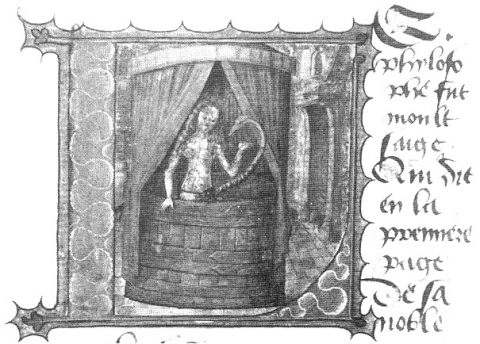 LE
phyloso
phe fut
moult
saige
Qui dit
en la
premiere
page
De sa
noble